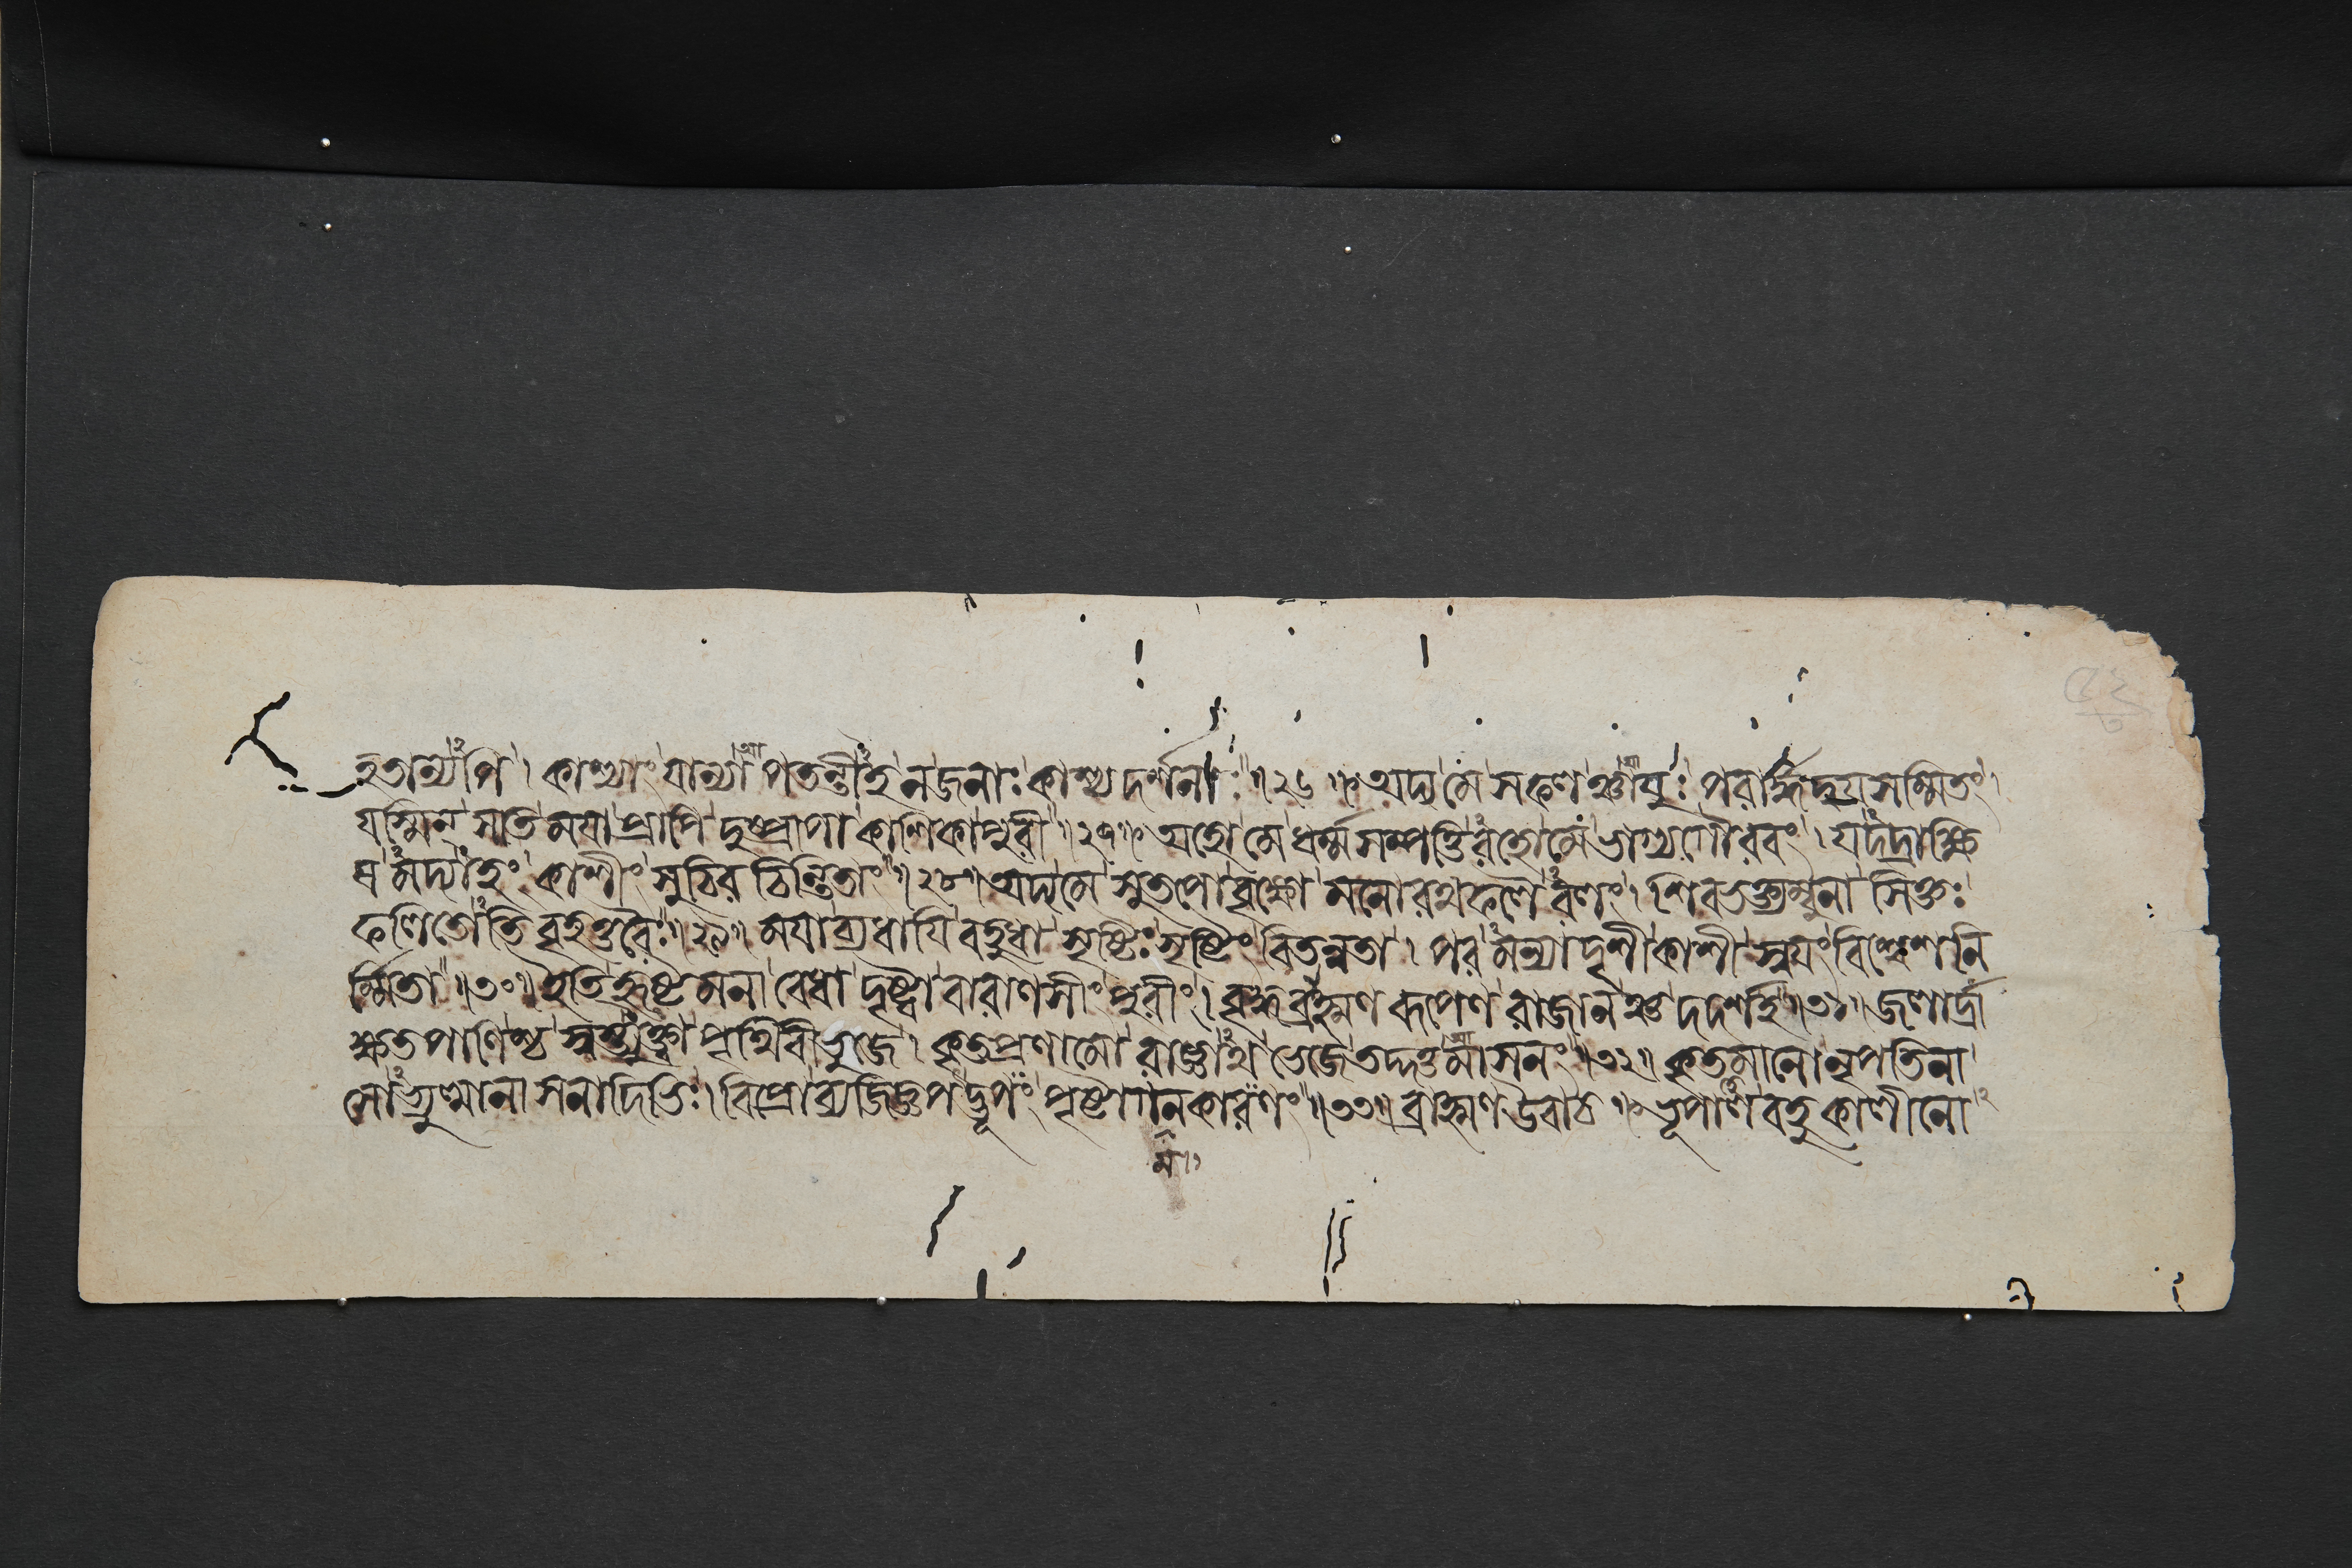 হতান্যপি। কাশ্যাং যান্যা পতন্তীহ ন জনাঃ কাশ্যদর্শনাঃ॥২৬॥ অদ্য মে সফলঞ্চায়ুঃ পরার্দ্ধদ্বয়সম্মিতং।
যস্মিন্ সতি ময়া প্রাপি দুষ্প্রাপা কাশিকাপুরী॥২৭॥ অহো মে ধর্ম্মসম্পত্তিরহো মে ভাগ্যগৌরবং। যদদ্রাক্ষি
ষমদ্যাহং কাশীং সুচিরচিন্তিতাং॥২৮॥ অদ্য মে সুতপোবৃক্ষো মনোরথফলৈরলং। শিবভক্ত্যম্বুনা সিক্তঃ
ফলিতোতিবৃহত্তরৈঃ॥২৯॥ ময়া ব্যধায়ি বহুধা সৃষ্টিঃ সৃষ্টিং বিতন্বতা। পরমন্যাদৃশী কাশী স্বয়ং বিশ্বেশনি
র্ম্মিতা॥৩০॥ ইতি হৃষ্টমনা বেধা দৃষ্ট্বা বারাণসীং পুরীং। বৃদ্ধব্রাহ্মণরূপেণ রাজানঞ্চ দদর্শ হ॥৩১॥ জলার্দ্রা
ক্ষতপাণিশ্চ স্বস্ত্যুক্ত্বা পৃথিবীভুজে। কৃতপ্রণামো রাজ্ঞাথ ভেজে তদ্দত্তমাসনং॥৩২॥ কৃতমানো নৃপতিনা
সোভ্যুত্থানাসনাদিভিঃ। বিপ্রো ব্যজিজ্ঞপদ্ভূপং পৃষ্টাগনকারণং॥৩৩॥ ব্রাহ্মণ উবাচ॥ ভূপাল বহুকালীনো
ম